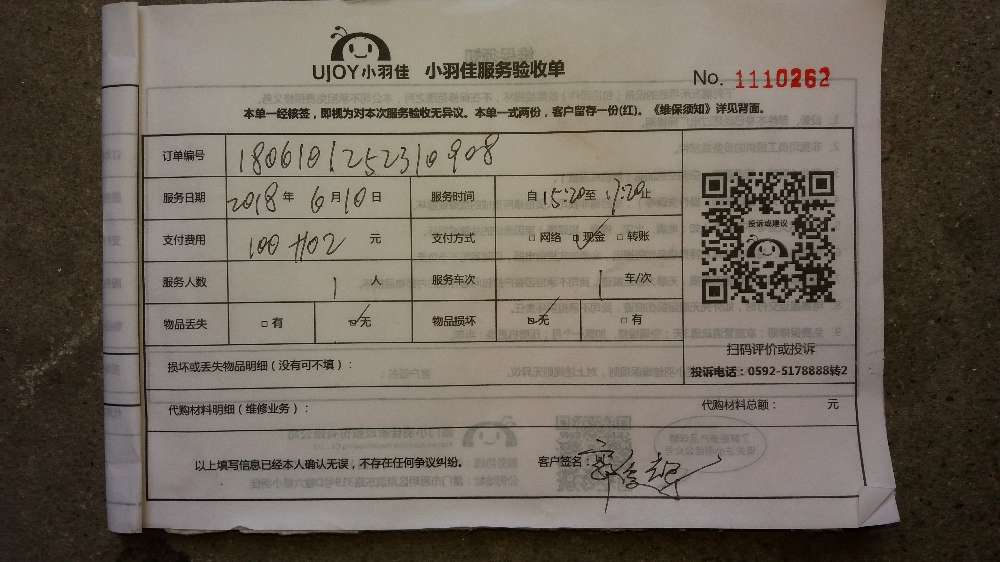 UJOY小羽佳 小羽佳服务验收单
No. 1110262
本单一经核签，即视为对本次服务验收无异议。本单一式两份，客户留存一份(红)。《维保须知》详见背面。
订单编号 1806101252310908
服务日期 2018 年 6 月 10 日 服务时间 自 15:20 至 17:20 止
支付费用 100 元 支付方式 □ 网络 ☑ 现金 □ 转账
投诉或建议
服务人数 1 人 服务车次 1 车/次
物品丢失 □ 有 ☑ 无 物品损坏 ☑ 无 □ 有
扫码评价或投诉
投诉电话：0592-5178888转2
损坏或丢失物品明细（没有可不填）：
代购材料明细（维修业务）： 代购材料总额： 元
以上填写信息已经本人确认无误，不存在任何争议纠纷。 客户签名：